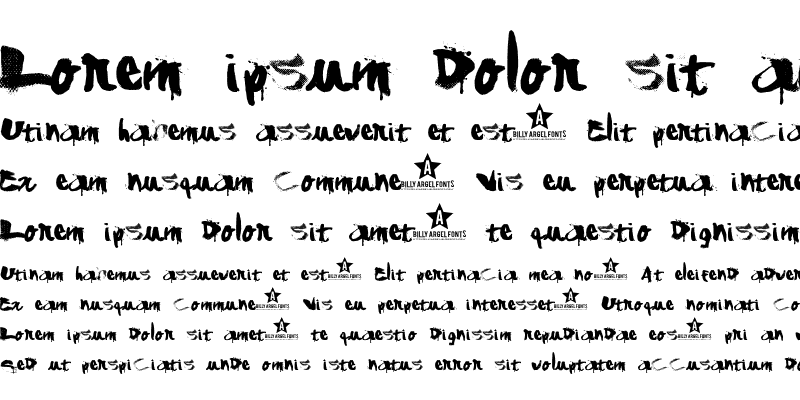 Lorem ipsum Dolor sit
Utinam haremus assueverit et est BILLY ARGEL FONTS Elit pertinacia
Ex eam nusquam Commune BILLY ARGEL FONTS Vis eu perpetua intere
Lorem ipsum Dolor sit amet BILLY ARGEL FONTS te quaestio Dignissim
Utinam haremus assueverit et est BILLY ARGEL FONTS Elit pertinacia mea no BILLY ARGEL FONTS At eleifenD aDver
Ex eam nusquam Commune BILLY ARGEL FONTS Vis eu perpetua interesset BILLY ARGEL FONTS Utroque nominati Co
Lorem ipsum Dolor sit amet BILLY ARGEL FONTS te quaestio Dignissim repuDianDae eos BILLY ARGEL FONTS pri an
SeD ut perspiciatis unDe omnis iste natus error sit voluptatem aCCusantium Do